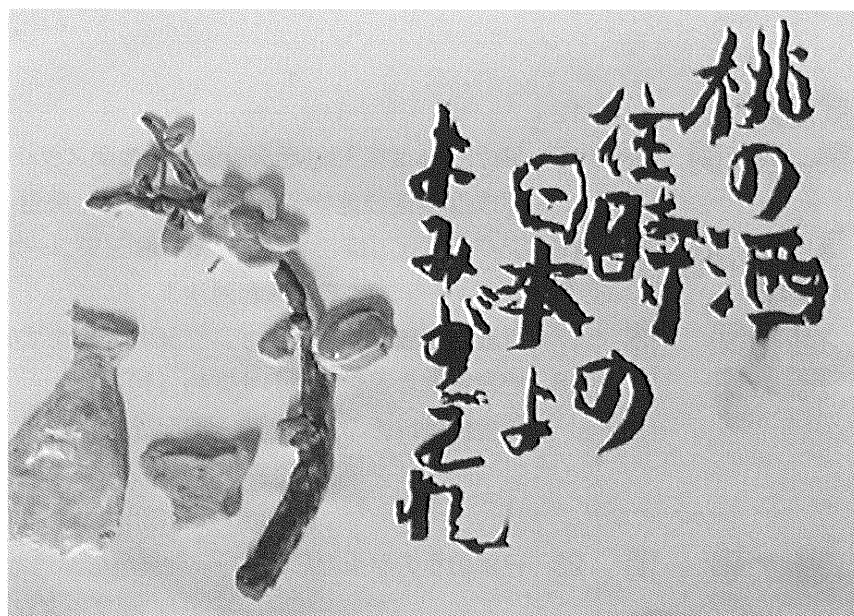 桃の酒
往時の
日本よ
よみがえれ